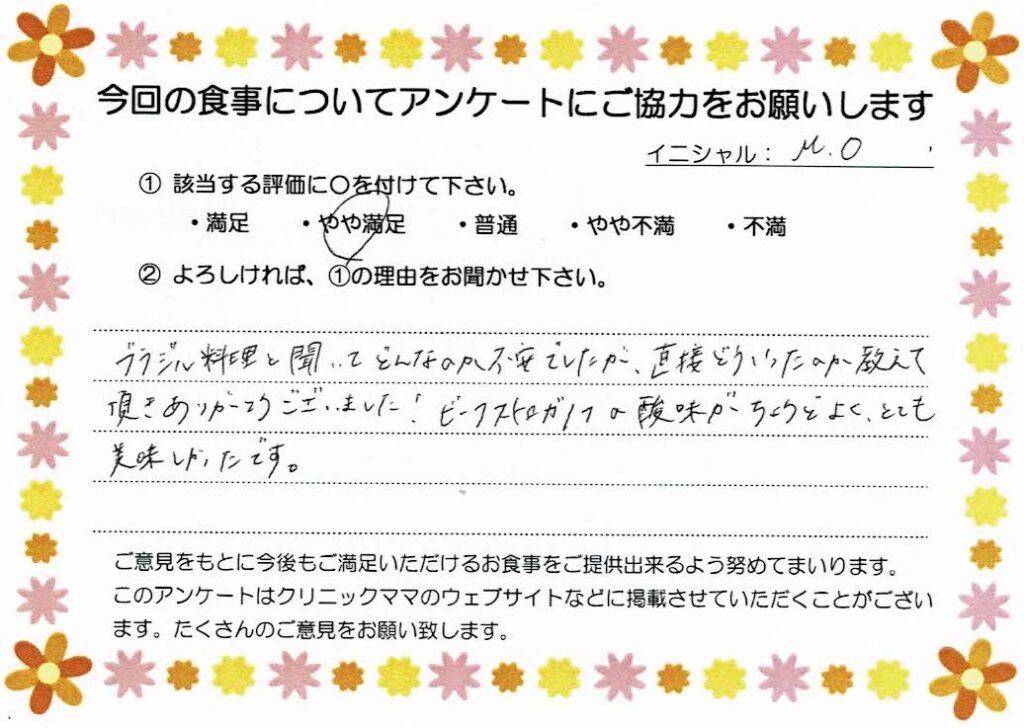 今回の食事についてアンケートにご協力をお願いします
イニシャル： M.O
① 該当する評価に〇を付けて下さい。
・満足 ・やや満足 ・普通 ・やや不満 ・不満
② よろしければ、①の理由をお聞かせ下さい。
ブラジル料理と聞いてどんなのか不安でしたが、直接どういったのか教えて
頂きありがとうございました！ビーフストロガノフの酸味がちょうどよく、とても
美味しかったです。
ご意見をもとに今後もご満足いただけるお食事をご提供出来るよう努めてまいります。
このアンケートはクリニックママのウェブサイトなどに掲載させていただくことがござい
ます。たくさんのご意見をお願い致します。